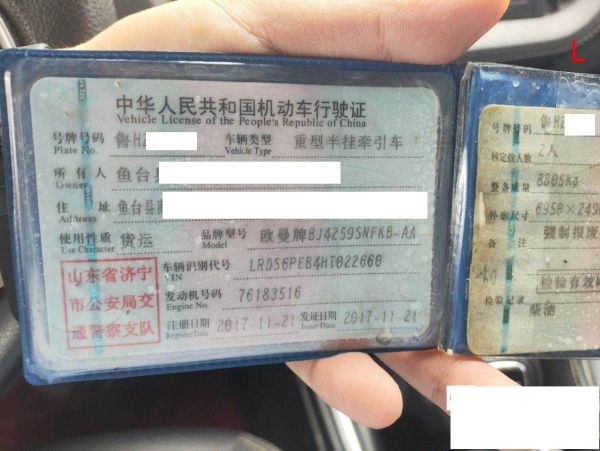 中华人民共和国机动车行驶证
Vehicle License of the People's Republic of China
号牌号码 鲁H2 车辆类型 重型半挂牵引车
Plate No. Vehicle Type
所有人 鱼台县
Owner
住址 鱼台县
Address
使用性质 货运 品牌型号 欧曼牌BJ4259SNFKB-AA
Use Character Model
山东省济宁
市公安局交
通警察支队
车辆识别代号 LRDS6PEB4HT022660
VIN
发动机号码 76183516
Engine No.
注册日期 2017-11-21 发证日期 2017-11-21
Register Date Issue Date
号牌号码 鲁H2
核定载人数 2人
整备质量 8805kg
外廓尺寸 6950×249
备注 强制报废
检验有效
检验记录
柴油
L